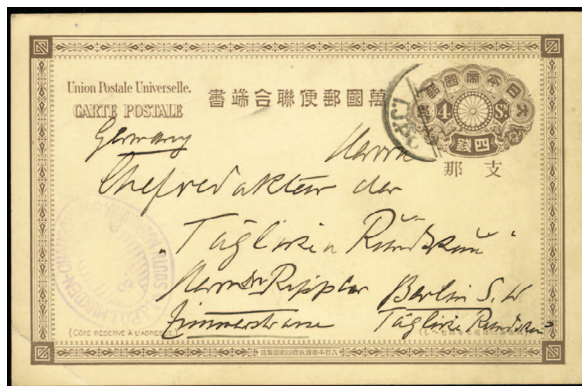 Union Postale Universelle.
CARTE POSTALE
書端合聯便郵國萬
大日本帝國郵便
4 Sn
四錢
支那
I.J.P.O.
Germany
Herrn
Chefredakteur der
"Tägliche Rundschau"
Herrn Dr Rippler Berlin S.W
Zimmerstrasse Tägliche Rundschau
(CÔTÉ RÉSERVÉ À L'ADRESSE)